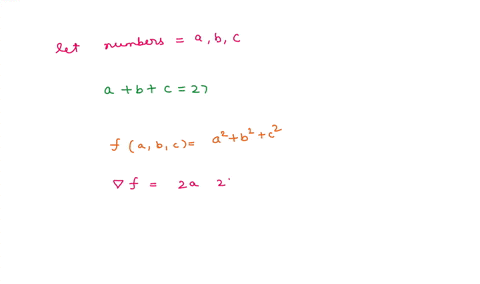 let numbers = a, b, c
a + b + c = 27
f (a, b, c) = a² + b² + c²
∇ f = 2a 2